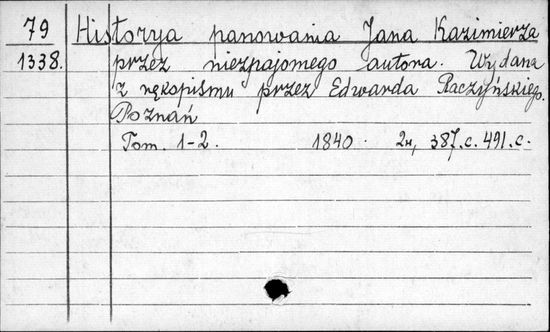 79 Historya panowania Jana Kazimierza
1338. przez nieznajomego autora. Wydana
z rękopismu przez Edwarda Raczyńskiego.
Poznań
Tom. 1-2. 1840. 2н, 387.c. 491.c.